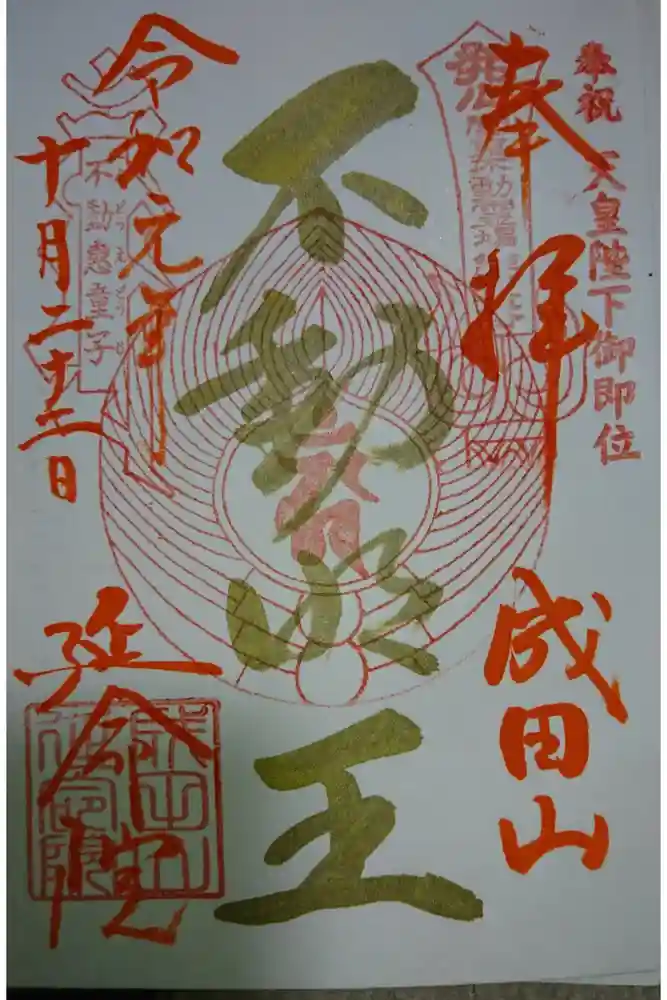 奉祝 天皇陛下御即位
奉拝
成田山
不動明王
令和元年
十月二十二日
不動恵童子
延命院